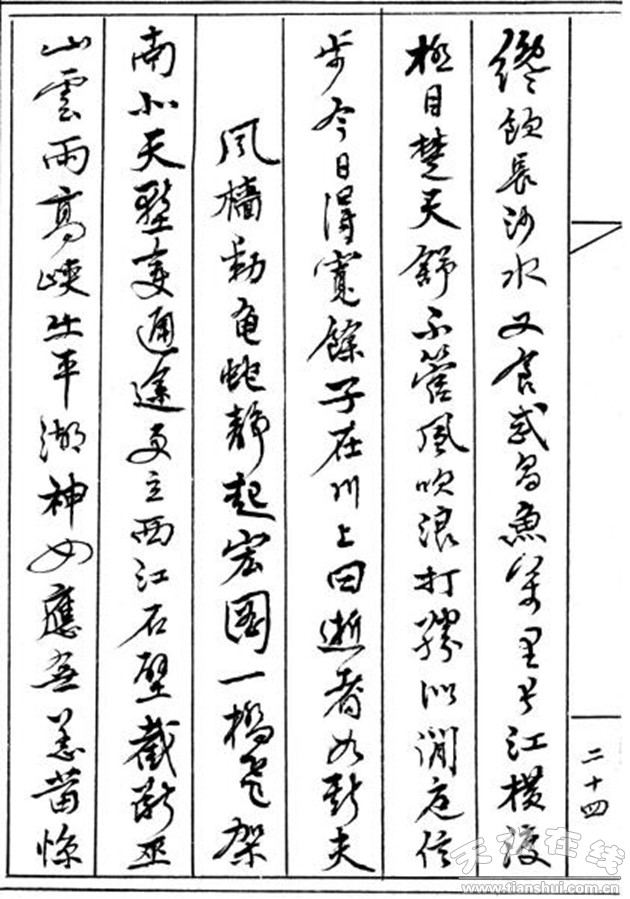 纔飲長沙水又食武昌魚萬里長江橫渡
極目楚天舒不管風吹浪打勝似閒庭信
步今日得寬餘子在川上曰逝者如斯夫
風檣動龜蛇靜起宏圖一橋飛架
南北天塹變通途更立西江石壁截斷巫
山雲雨高峽出平湖神女應無恙當惊
二十四
天水在线
www.tianshui.com.cn